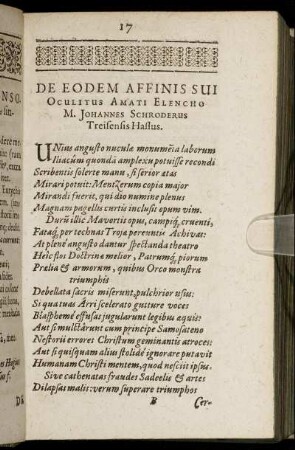 17
DE EODEM AFFINIS SUI
OCULITUS AMATI ELENCHO
M. JOHANNES SCHRODERUS
Treisensis Hassus.
UNius angusto nuculæ monumēta laborum
Iliacûm quondā amplexu potuisse recondi
Scribentis solerte manu, si serior ætas
Mirari potuit: Mentzerum copia major
Mirandi fuerit, qui dio numine plenus
Magnam pagellis curtis inclusit opum vim.
Dum ille Mavortis opus, campiq́ cruenti,
Fataq́, per technas Troja pereuntis Achivas:
At plenè angusto dantur spectanda theatro
Heic flos Doctrinæ melior, Patrumq́, piorum
Prælia & armorum, quibus Orco monstra
triumphis
Debellata sacris miserunt, pulchrior usus:
Si qua tuas Arri scelerato gutture voces
Blasphemè effusas jugularunt legibus æquis:
Aut simultārunt cum principe Samosateno
Nestorii erroret Christum geminantis atroces:
Aut si quisquam alius stolidè ignorare putavit
Humanam Christi mentem, quod nesciit ipsus.
Sive cathenatas fraudes Sadeelis & artes
Dilapsas malis: verum superare triumphos
B
Cer-